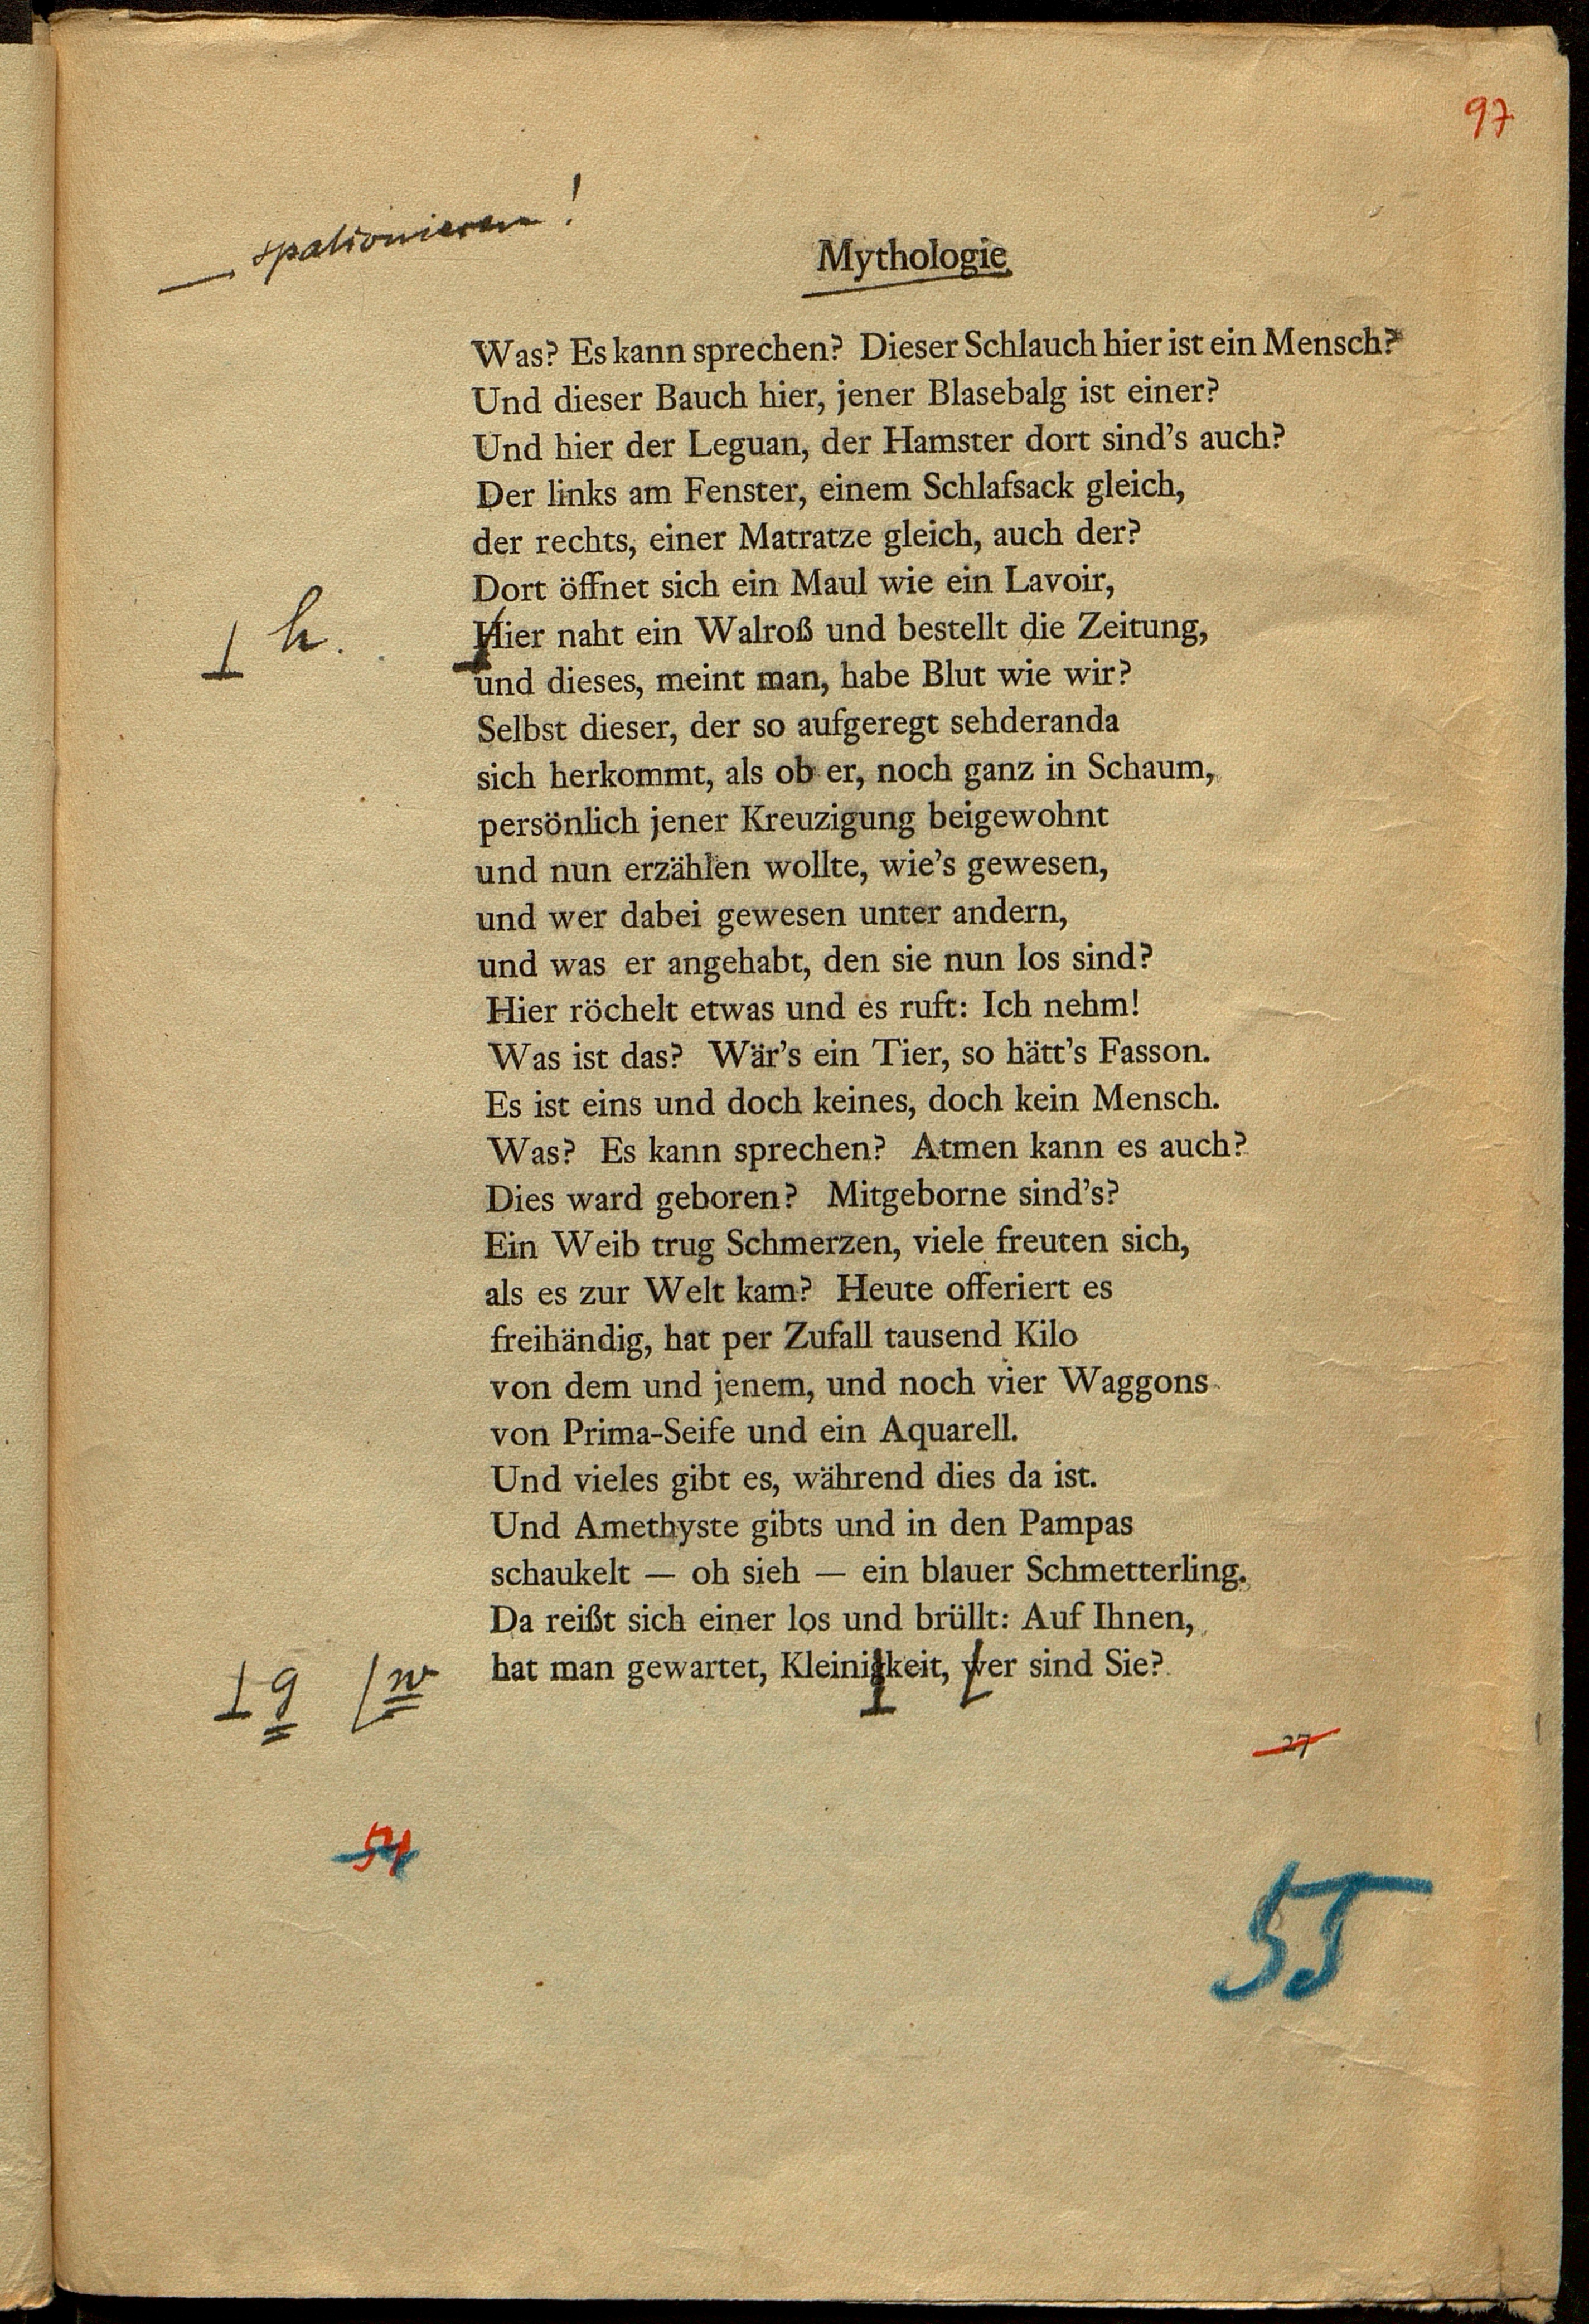 97
spationieren!
Mythologie
Was? Es kann sprechen? Dieser Schlauch hier ist ein Mensch?
Und dieser Bauch hier, jener Blasebalg ist einer?
Und hier der Leguan, der Hamster dort sind's auch?
Der links am Fenster, einem Schlafsack gleich,
der rechts, einer Matratze gleich, auch der?
Dort öffnet sich ein Maul wie ein Lavoir,
h.
Hier naht ein Walroß und bestellt die Zeitung,
und dieses, meint man, habe Blut wie wir?
Selbst dieser, der so aufgeregt sehderanda
sich herkommt, als ob er, noch ganz in Schaum,
persönlich jener Kreuzigung beigewohnt
und nun erzählen wollte, wie's gewesen,
und wer dabei gewesen unter andern,
und was er angehabt, den sie nun los sind?
Hier röchelt etwas und es ruft: Ich nehm!
Was ist das? Wär's ein Tier, so hätt's Fasson.
Es ist eins und doch keines, doch kein Mensch.
Was? Es kann sprechen? Atmen kann es auch?
Dies ward geboren? Mitgeborne sind's?
Ein Weib trug Schmerzen, viele freuten sich,
als es zur Welt kam? Heute offeriert es
freihändig, hat per Zufall tausend Kilo
von dem und jenem, und noch vier Waggons
von Prima-Seife und ein Aquarell.
Und vieles gibt es, während dies da ist.
Und Amethyste gibts und in den Pampas
schaukelt — oh sieh — ein blauer Schmetterling.
Da reißt sich einer los und brüllt: Auf Ihnen,
g w
hat man gewartet, Kleinigkeit, wer sind Sie?
27
54
55